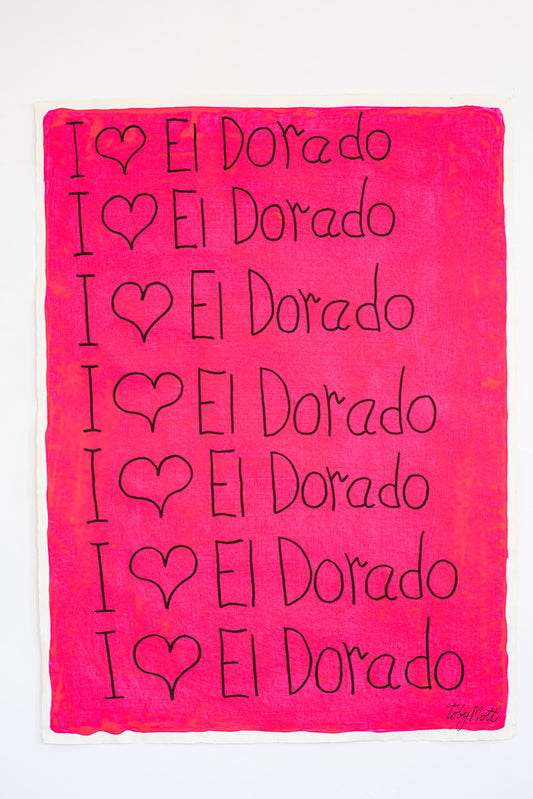 I ♡ El Dorado
I ♡ El Dorado
I ♡ El Dorado
I ♡ El Dorado
I ♡ El Dorado
I ♡ El Dorado
I ♡ El Dorado
Toby Mott